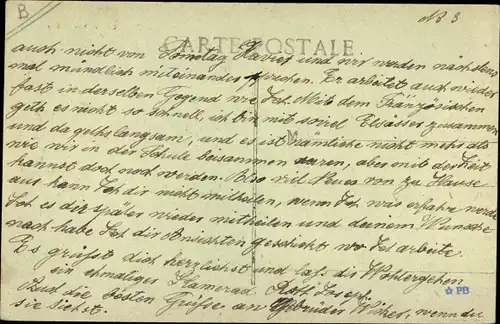 B
No 3
CARTE POSTALE
auch nicht von Sonntag und wir werden nächstens
mal mündlich miteinander sprechen. Er arbeitet auch wieder
fast in derselben Gegend wie Ich. Mit dem Französischen
geht es nicht so schnell, ich bin mit soviel Elsässer zusammen
und da gehts langsam, und es ist nämliche nicht mehr als
wie wir in der Schule beisammen waren, aber mit der Zeit
kannst doch noch werden. Also viel Neues von zu Hause
aus kann Ich dir nicht mitheilen, wenn Ich was erfahre werde
Ich es dir später wieder mittheilen und deinem Wunsche
nach habe Ich dir Ansichten geschickt wo Ich arbeite.
Es grüsst dich herzlichst und auf Wohlergehen
ein ehmaliger Kamerad Joseph.
Auch die besten Grüsse an Gebrüder wenn du
sie siehst.
PB